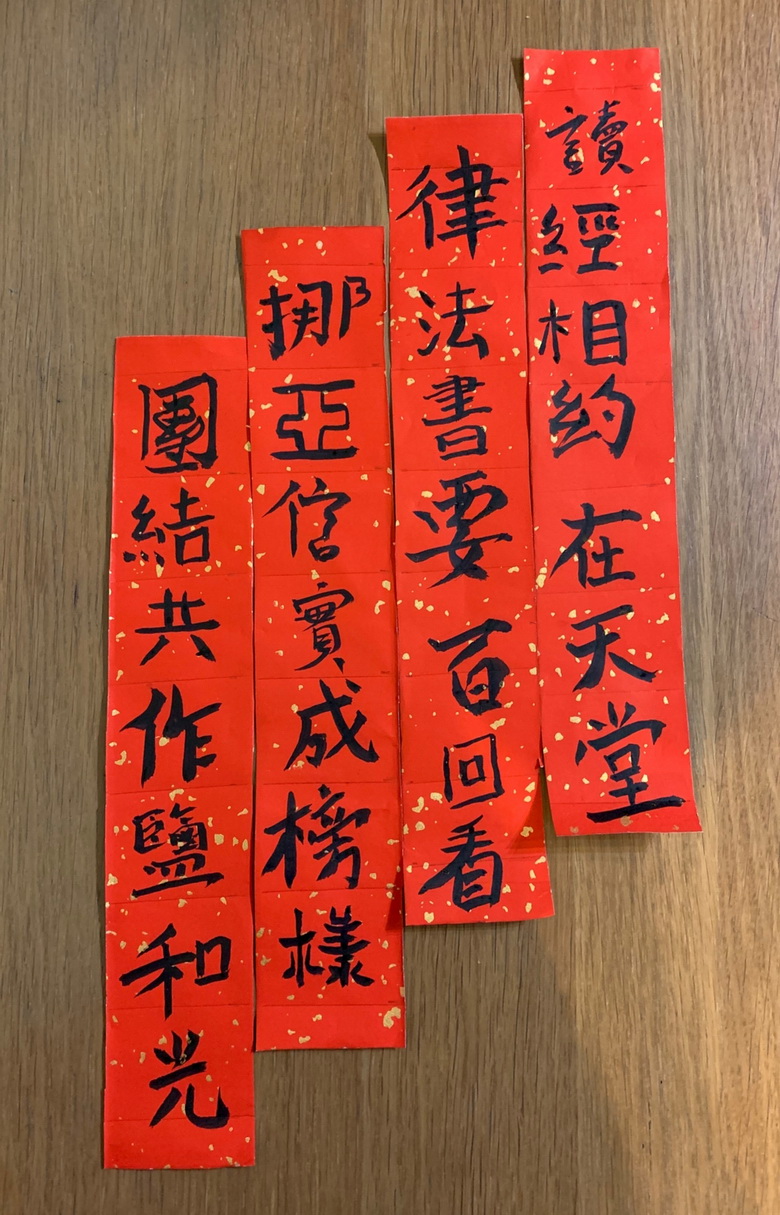 讀經相約在天堂
律法書要百回看
挪亞信實成榜樣
團結共作鹽和光